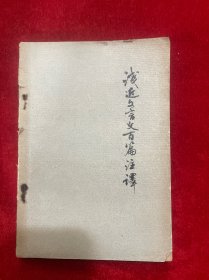 浅近文言文百篇注译